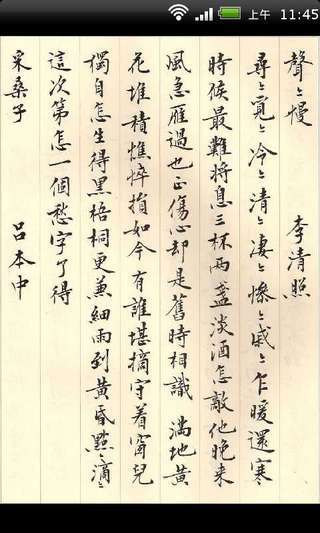 上午 11:45
聲〻慢　李清照
尋〻覓〻冷〻清〻淒〻慘〻戚〻乍暖還寒
時候最難將息三杯兩盞淡酒怎敵他晚來
風急雁過也正傷心却是舊時相識 滿地黃
花堆積憔悴損如今有誰堪摘守着窗兒
獨自怎生得黑梧桐更兼細雨到黃昏點〻滴〻
這次第怎一個愁字了得
采桑子　呂本中